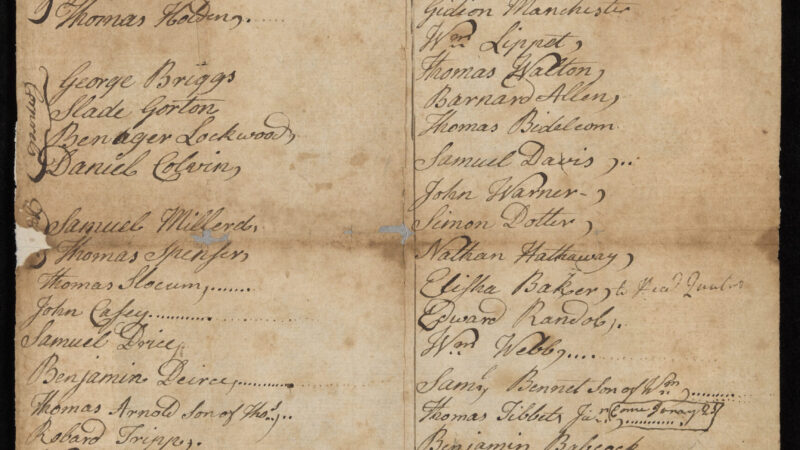 Thomas Holden,
George Briggs
Slade Gorton
Benager Lockwood,
Daniel Colvin,
Samuel Millerd,
Thomas Spenser,
Thomas Slocum,.......
John Casey............
Samuel Drice,
Benjamin Deirce,............
Thomas Arnold Son of Thos,..
Robard Tripp,.
Gidion Manchester
Wm Lippet,
Thomas Walton,
Barnard Allen,
Thomas Bidelcom
Samuel Davis,..
John Warner-,
Simon Dotter,
Nathan Hathaway,
Elisha Baker, to Head Quarters
Edward Randob,.
Wm Webb,....
Saml Bennet Son of Wm..........
Thomas Tibbets Junr
Benjamin Babcock